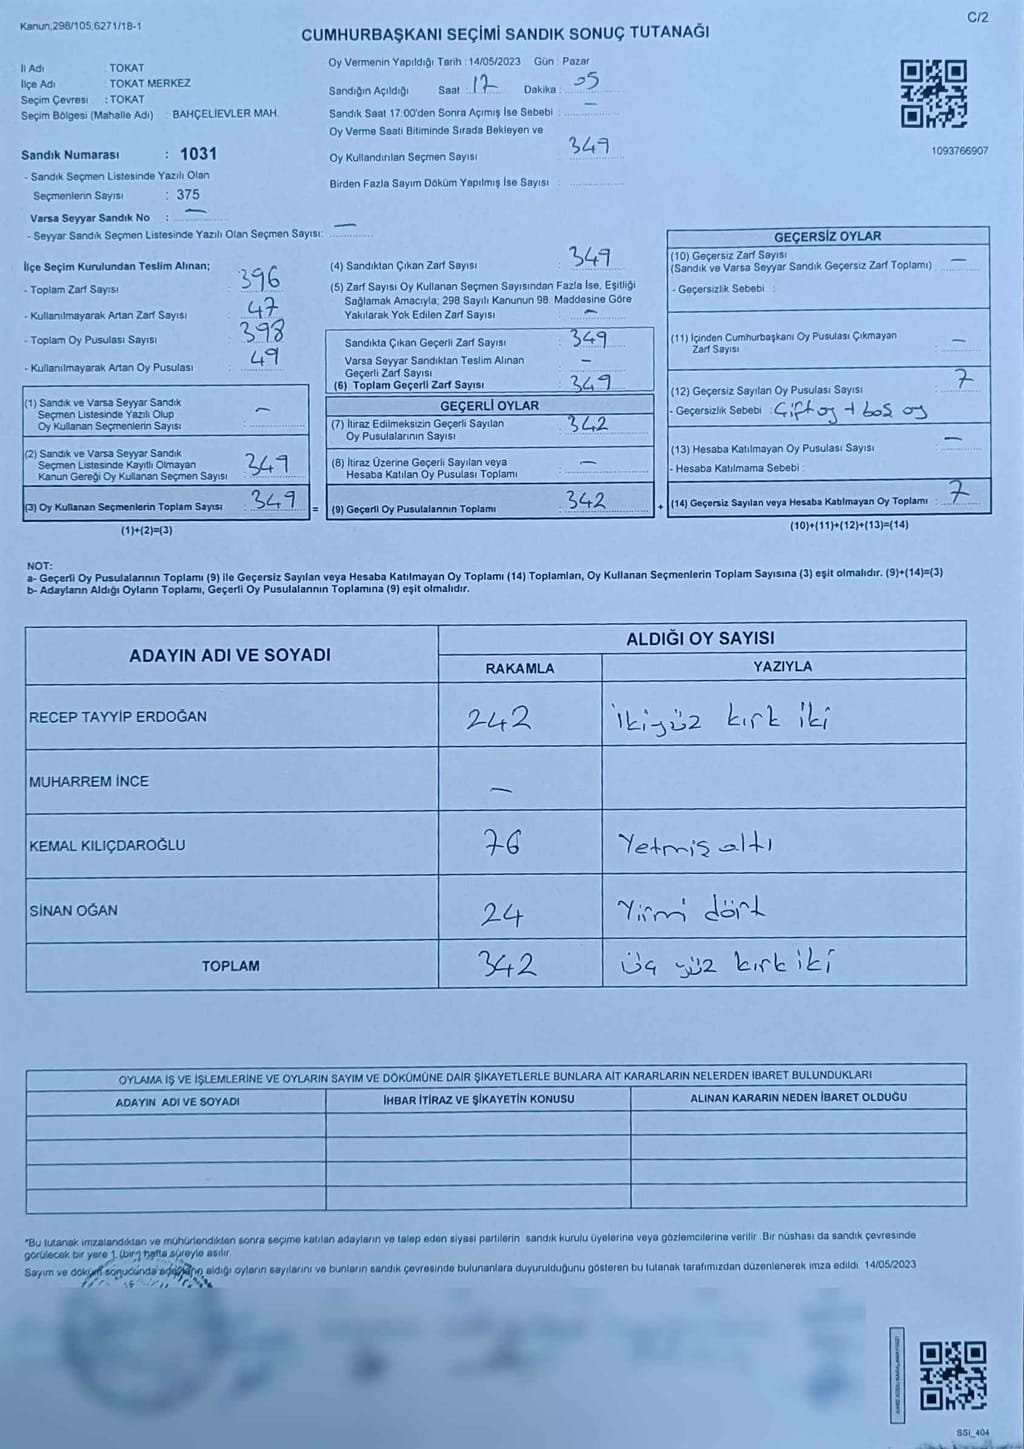 Kanun,298/105,6271/18-1
C/2
CUMHURBAŞKANI SEÇİMİ SANDIK SONUÇ TUTANAĞI
İl Adı : TOKAT
İlçe Adı : TOKAT MERKEZ
Seçim Çevresi : TOKAT
Seçim Bölgesi (Mahalle Adı) : BAHÇELİEVLER MAH.
Sandık Numarası : 1031
- Sandık Seçmen Listesinde Yazılı Olan
Seçmenlerin Sayısı : 375
Varsa Seyyar Sandık No : —
- Seyyar Sandık Seçmen Listesinde Yazılı Olan Seçmen Sayısı: —
Oy Vermenin Yapıldığı Tarih : 14/05/2023 Gün : Pazar
Sandığın Açıldığı Saat : 17 Dakika : 05
Sandık Saat 17:00'den Sonra Açımış İse Sebebi : —
Oy Verme Saati Bitiminde Sırada Bekleyen ve
Oy Kullandırılan Seçmen Sayısı 349
Birden Fazla Sayım Döküm Yapılmış İse Sayısı :
1093766907
İlçe Seçim Kurulundan Teslim Alınan;
- Toplam Zarf Sayısı : 396
- Kullanılmayarak Artan Zarf Sayısı : 47
- Toplam Oy Pusulası Sayısı : 398
- Kullanılmayarak Artan Oy Pusulası : 49
(1) Sandık ve Varsa Seyyar Sandık
Seçmen Listesinde Yazılı Olup
Oy Kullanan Seçmenlerin Sayısı : —
(2) Sandık ve Varsa Seyyar Sandık
Seçmen Listesinde Kayıtlı Olmayan
Kanun Gereği Oy Kullanan Seçmen Sayısı : 349
(3) Oy Kullanan Seçmenlerin Toplam Sayısı : 349
(1)+(2)=(3)
=
(4) Sandıktan Çıkan Zarf Sayısı : 349
(5) Zarf Sayısı Oy Kullanan Seçmen Sayısından Fazla İse, Eşitliği
Sağlamak Amacıyla; 298 Sayılı Kanunun 98. Maddesine Göre
Yakılarak Yok Edilen Zarf Sayısı : —
Sandıkta Çıkan Geçerli Zarf Sayısı : 349
Varsa Seyyar Sandıktan Teslim Alınan
Geçerli Zarf Sayısı : —
(6) Toplam Geçerli Zarf Sayısı : 349
GEÇERLİ OYLAR
(7) İtiraz Edilmeksizin Geçerli Sayılan
Oy Pusulalarının Sayısı : 342
(8) İtiraz Üzerine Geçerli Sayılan veya
Hesaba Katılan Oy Pusulası Toplamı : —
(9) Geçerli Oy Pusulalarının Toplamı : 342
+
GEÇERSİZ OYLAR
(10) Geçersiz Zarf Sayısı
(Sandık ve Varsa Seyyar Sandık Geçersiz Zarf Toplamı) : —
- Geçersizlik Sebebi :
(11) İçinden Cumhurbaşkanı Oy Pusulası Çıkmayan
Zarf Sayısı : —
(12) Geçersiz Sayılan Oy Pusulası Sayısı : 7
- Geçersizlik Sebebi : Çift oy + boş oy
(13) Hesaba Katılmayan Oy Pusulası Sayısı : —
- Hesaba Katılmama Sebebi :
(14) Geçersiz Sayılan veya Hesaba Katılmayan Oy Toplamı : 7
(10)+(11)+(12)+(13)=(14)
NOT:
a- Geçerli Oy Pusulalarının Toplamı (9) ile Geçersiz Sayılan veya Hesaba Katılmayan Oy Toplamı (14) Toplamları, Oy Kullanan Seçmenlerin Toplam Sayısına (3) eşit olmalıdır. (9)+(14)=(3)
b- Adayların Aldığı Oyların Toplamı, Geçerli Oy Pusulalarının Toplamına (9) eşit olmalıdır.
ADAYIN ADI VE SOYADI
ALDIĞI OY SAYISI
RAKAMLA YAZIYLA
RECEP TAYYİP ERDOĞAN 242 ikiyüz kırk iki
MUHARREM İNCE —
KEMAL KILIÇDAROĞLU 76 Yetmiş altı
SİNAN OĞAN 24 Yirmi dört
TOPLAM 342 üç yüz kırk iki
OYLAMA İŞ VE İŞLEMLERİNE VE OYLARIN SAYIM VE DÖKÜMÜNE DAİR ŞİKAYETLERLE BUNLARA AİT KARARLARIN NELERDEN İBARET BULUNDUKLARI
ADAYIN ADI VE SOYADI İHBAR İTİRAZ VE ŞİKAYETİN KONUSU ALINAN KARARIN NEDEN İBARET OLDUĞU
*Bu tutanak imzalandıktan ve mühürlendikten sonra seçime katılan adayların ve talep eden siyasi partilerin sandık kurulu üyelerine veya gözlemcilerine verilir. Bir nüshası da sandık çevresinde
görülecek bir yere 1 (bir) hafta süreyle asılır.
Sayım ve döküm sonucunda adayların aldığı oyların sayılarını ve bunların sandık çevresinde bulunanlara duyurulduğunu gösteren bu tutanak tarafımızdan düzenlenerek imza edildi. 14/05/2023
SSI_404